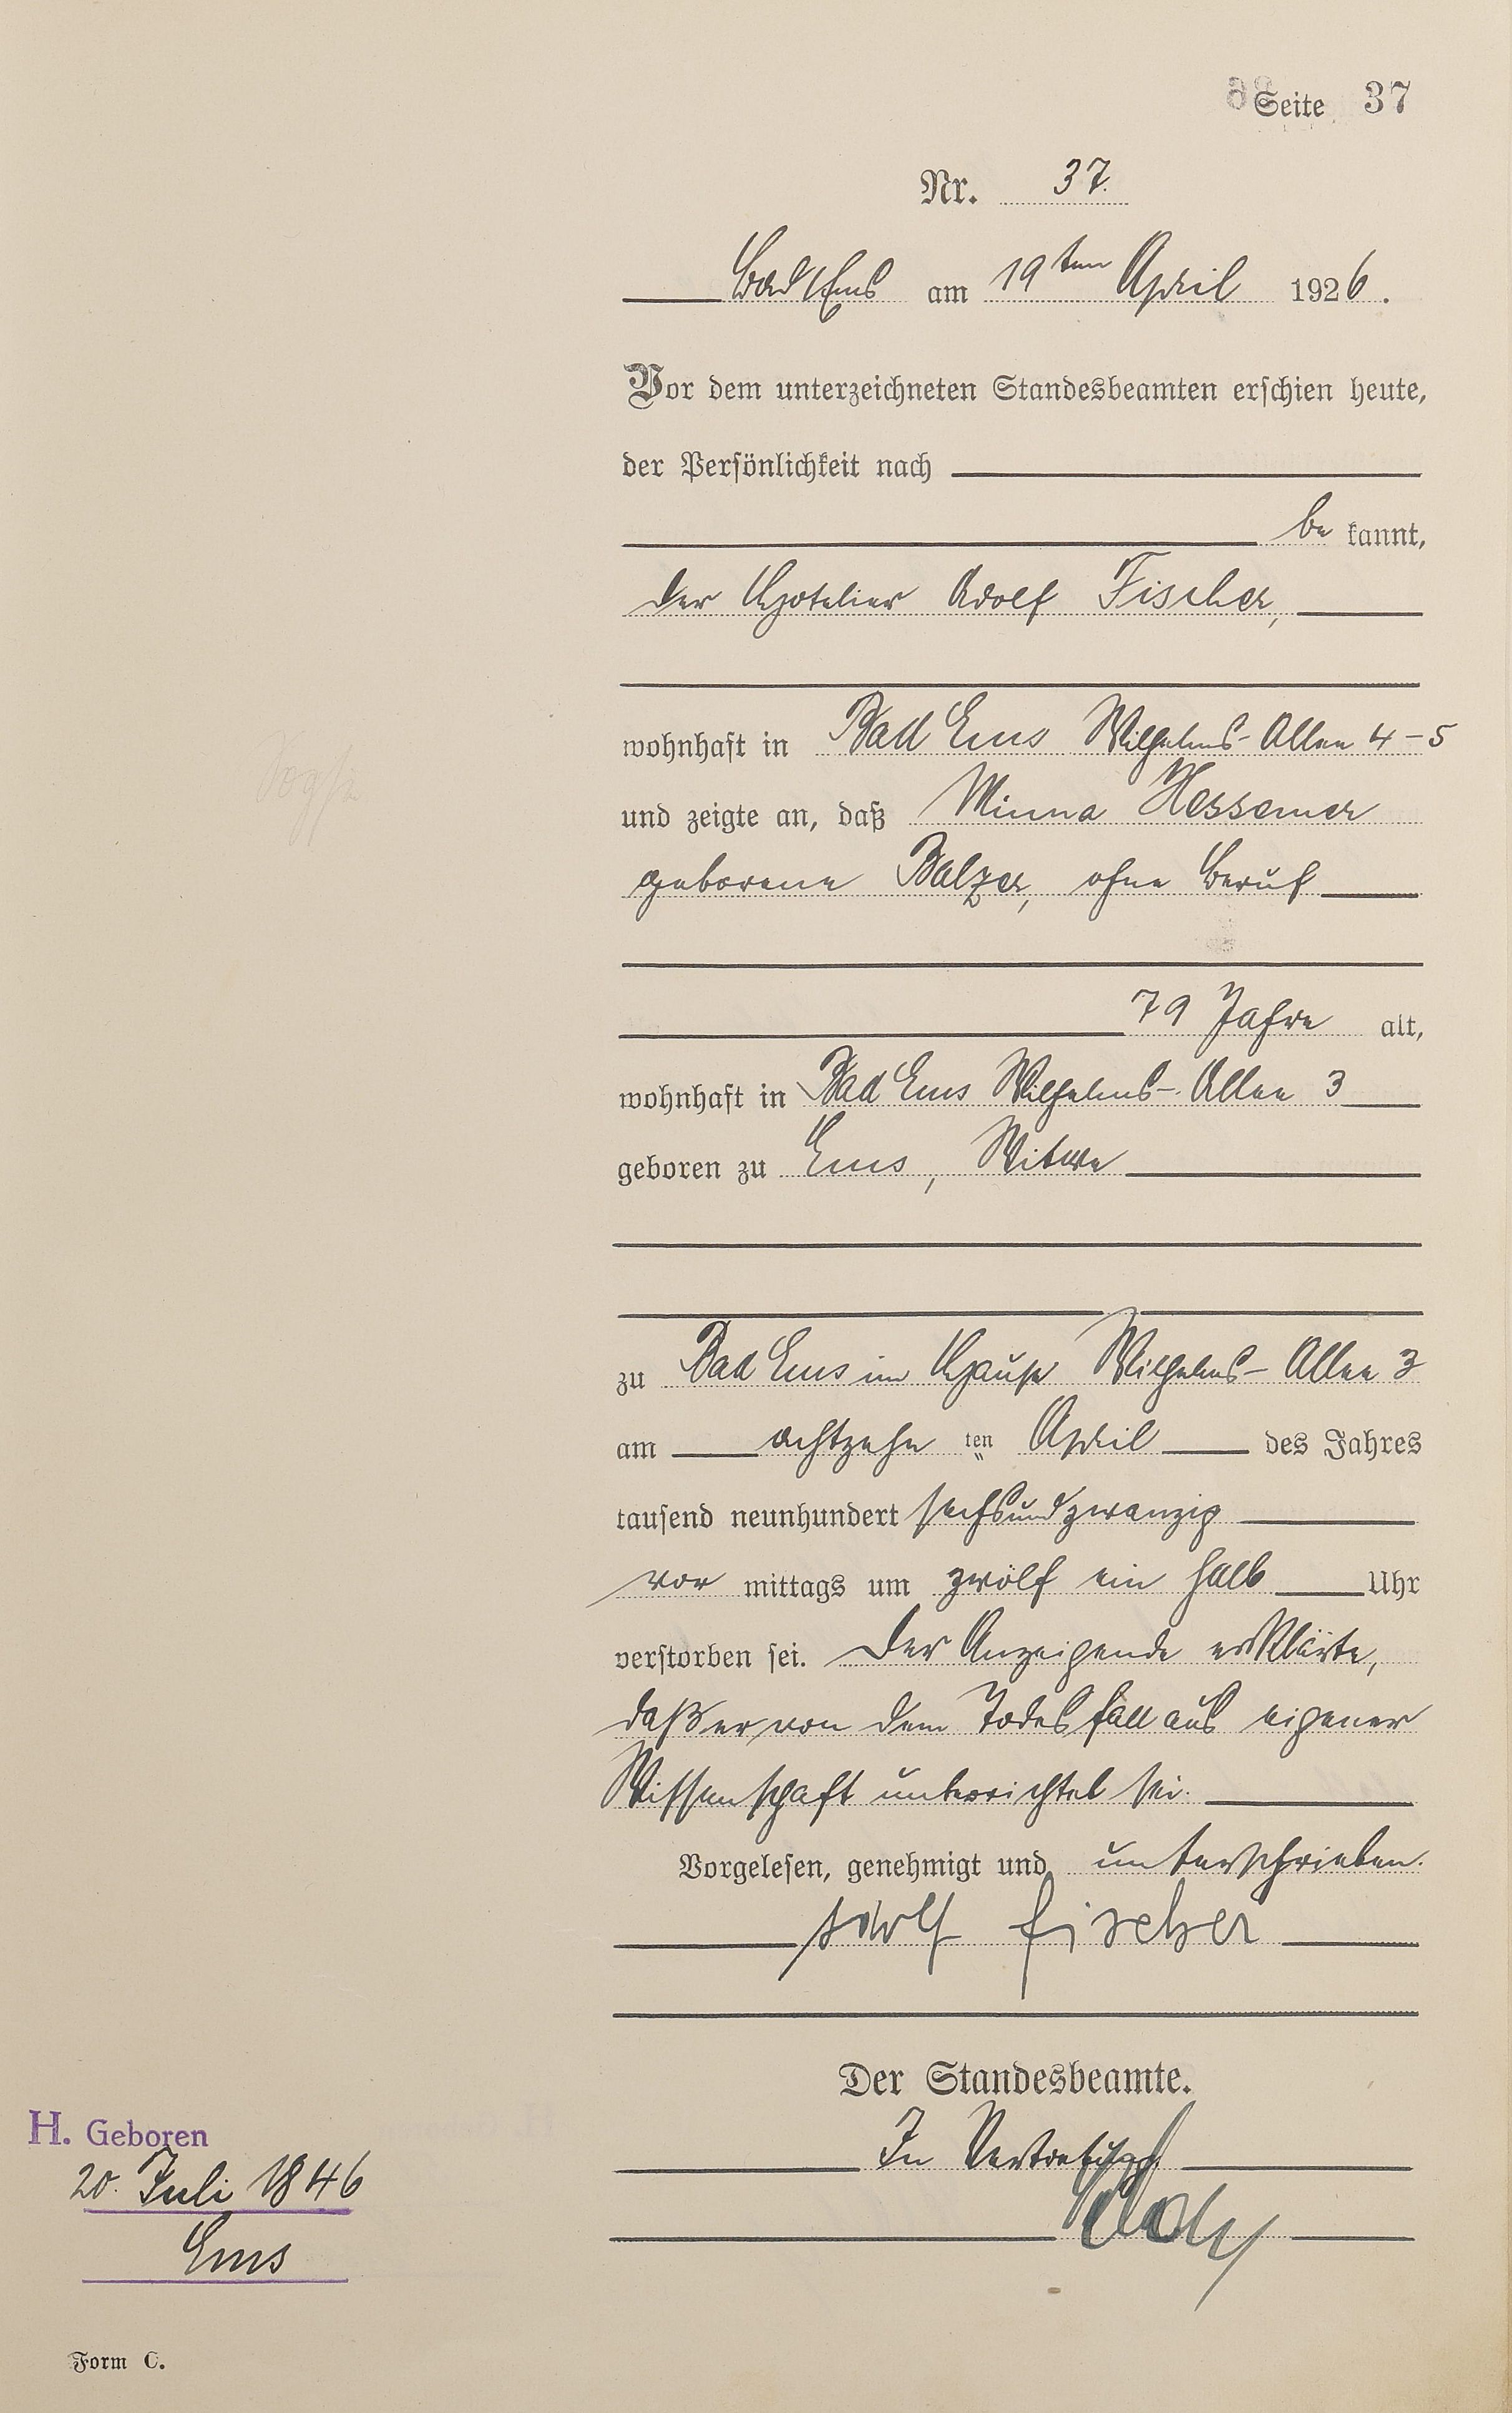 Seite 37
Nr. 37.
Bad Ems am 19ten April 1926.
Vor dem unterzeichneten Standesbeamten erschien heute,
der Persönlichkeit nach
be kannt,
der Hotelier Adolf Fischer,
wohnhaft in Bad Ems Wilhelms-Allee 4-5
und zeigte an, daß Minna Hessemer
geborene Balzer, ohne Beruf
79 Jahre alt,
wohnhaft in Bad Ems Wilhelms-Allee 3
geboren zu Ems, Witwe
zu Bad Ems im Hause Wilhelms-Allee 3
am achtzehn ten April des Jahres
tausend neunhundert sechsundzwanzig
vor mittags um zwölf ein halb Uhr
verstorben sei. Der Anzeigende erklärte,
daß er von dem Todesfall aus eigener
Wissenschaft unterrichtet sei.
Vorgelesen, genehmigt und unterschrieben.
Adolf Fischer
Der Standesbeamte.
In Vertretung
H. Geboren
20. Juli 1846
Ems
Form C.